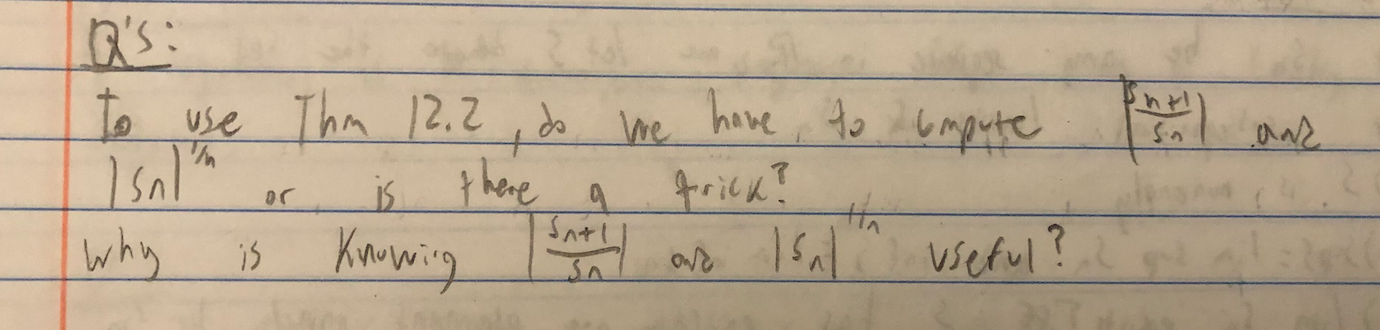 Q's:
To use Thm 12.2, do we have to compute |Sn+1/Sn| and
|Sn|^1/n or is there a trick?
Why is knowing |Sn+1/Sn| and |Sn|^1/n useful?